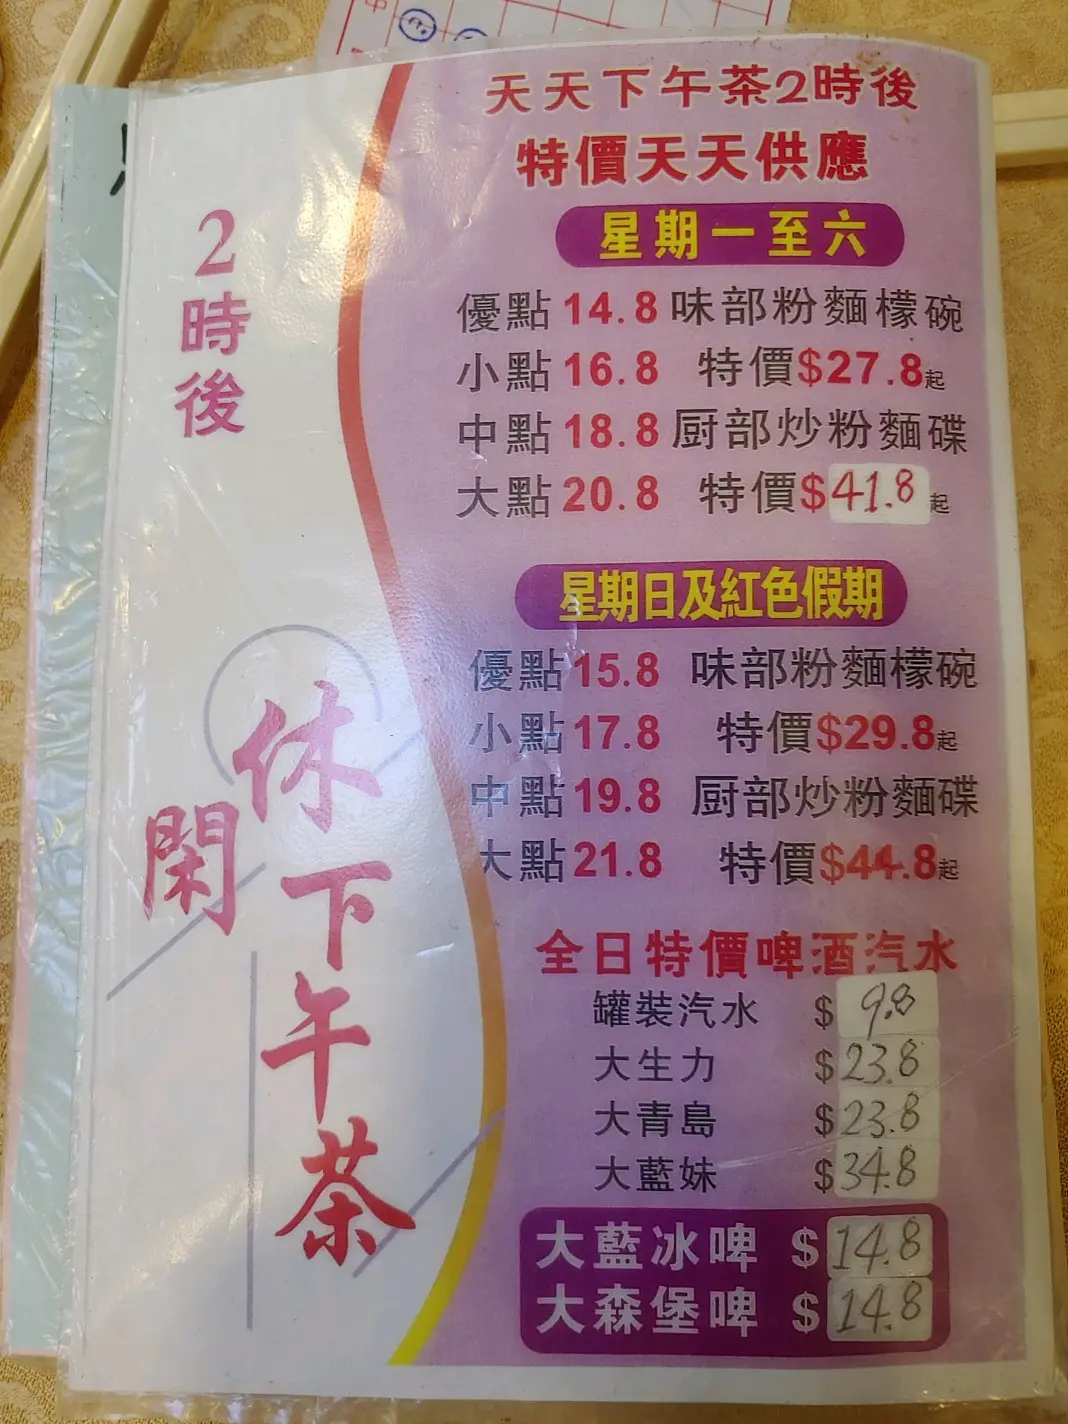 天天下午茶2時後
特價天天供應
星期一至六
優點 14.8 味部粉麵檬碗
小點 16.8 特價$27.8起
中點 18.8 厨部炒粉麵碟
大點 20.8 特價$41.8起
星期日及紅色假期
優點 15.8 味部粉麵檬碗
小點 17.8 特價$29.8起
中點 19.8 厨部炒粉麵碟
大點 21.8 特價$44.8起
全日特價啤酒汽水
罐裝汽水 $9.8
大生力 $23.8
大青島 $23.8
大藍妹 $34.8
大藍冰啤 $14.8
大森堡啤 $14.8
2時後
休閑下午茶